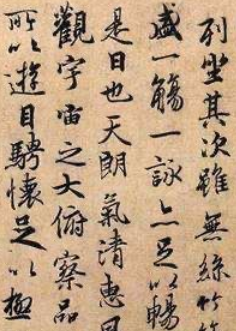 列坐其次雖無絲竹
盛一觴一詠亦足以暢
是日也天朗氣清惠風
觀宇宙之大俯察品
所以遊目騁懷足以極